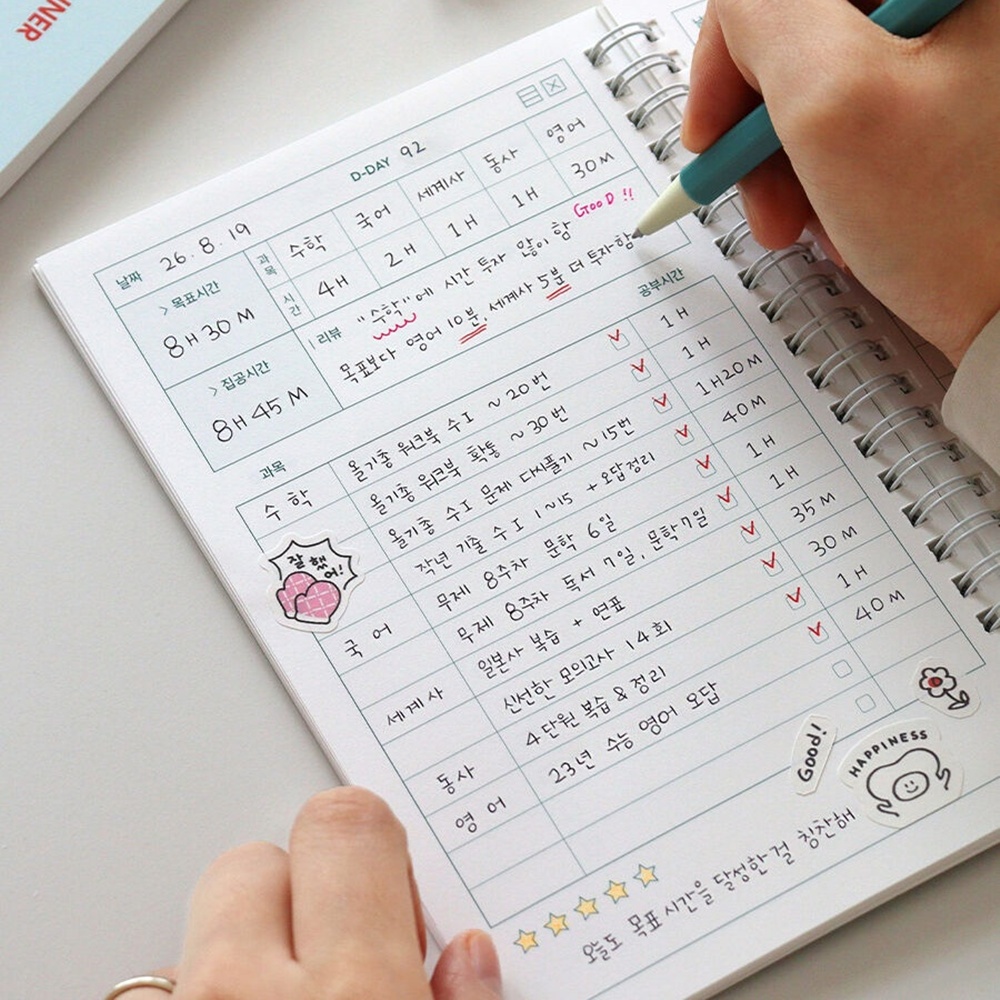 NER
D-DAY 92
날짜 26. 8. 19
과목 수학 국어 세계사 동사 영어
시간 4H 2H 1H 1H 30M
> 목표시간
8H 30M
> 집공시간
8H 45M
리뷰 "수학"에 시간 투자 많이 함 GooD !!
목표보다 영어 10분, 세계사 5분 더 투자함
과목 공부시간
수학 올기총 워크북 수I ~20번 1H
올기총 워크북 확통 ~30번 1H
올기총 수I 문제 다시풀기 ~15번 1H20M
작년 기출 수I 1~15 +오답정리 40M
국어 무제 8주차 문학 6일 1H
무제 8주차 독서 7일, 문학7일 1H
세계사 일본사 복습 + 연표 35M
신선한 모의고사 14회 30M
동사 4단원 복습 & 정리 1H
영어 23년 수능 영어 오답 40M
잘했어!
Good!
HAPPINESS
오늘도 목표 시간을 달성한걸 칭찬해